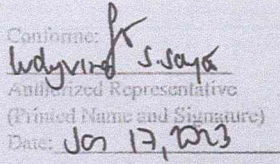 Conforme:
S. Saya
Authorized Representative
(Printed Name and Signature)
Date: Jan 17, 2023